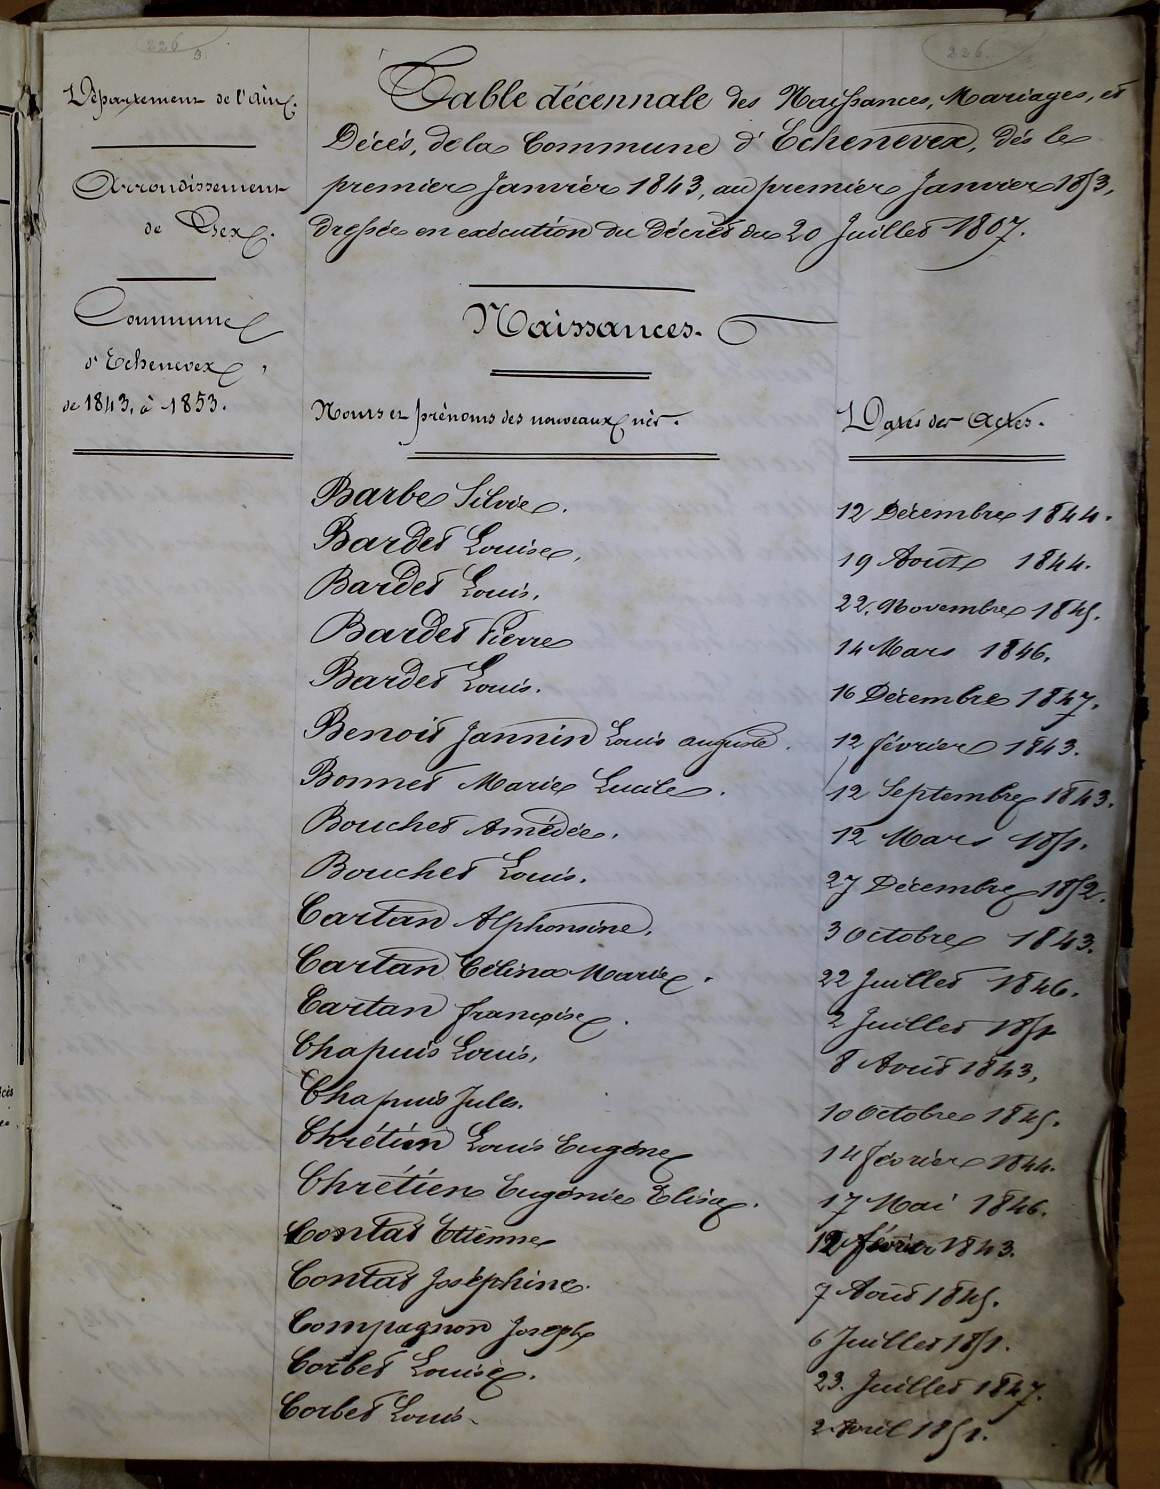 226
Département de l'Ain.
Arrondissement
de Gex.
Commune
d'Echenevex,
de 1843. à 1853.
226.
Table décennale des Naissances, Mariages, et
Décès, de la Commune d'Echenevex, dès le
premier Janvier 1843, au premier Janvier 1853,
dressée en exécution du décret du 20 Juillet 1807.
Naissances.
Noms et prénoms des nouveaux nés.
Dates des Actes.
Barbe Silvie. 12 Décembre 1844.
Bardet Louise, 19 Aout 1844.
Bardet Louis. 22. Novembre 1845.
Bardet Pierre 14 Mars 1846.
Bardet Louis. 16 Décembre 1847.
Benoit Jannin Louis auguste. 12 février 1843.
Bonnet Marie Lucile. 12 Septembre 1843.
Bouchet Amédée. 12 Mars 1851.
Bouchet Louis. 27 Décembre 1852.
Cartan Alphonsine. 3 Octobre 1843.
Cartan Célina Marie. 22 Juillet 1846.
Cartan françoise. 2 Juillet 1851
Chapuis Louis, 8 Aout 1843,
Chapuis Jules. 10 Octobre 1845.
Chrétien Louis Eugène 14 février 1844.
Chrétien Eugénie Elisa. 17 Mai 1846.
Contat Etienne 12 février 1843.
Contat Joséphine. 7 Aout 1845.
Compagnon Joseph 6 Juillet 1851.
Corbet Louise. 23. Juillet 1847.
Corbet Louis. 2. Avril 1851.